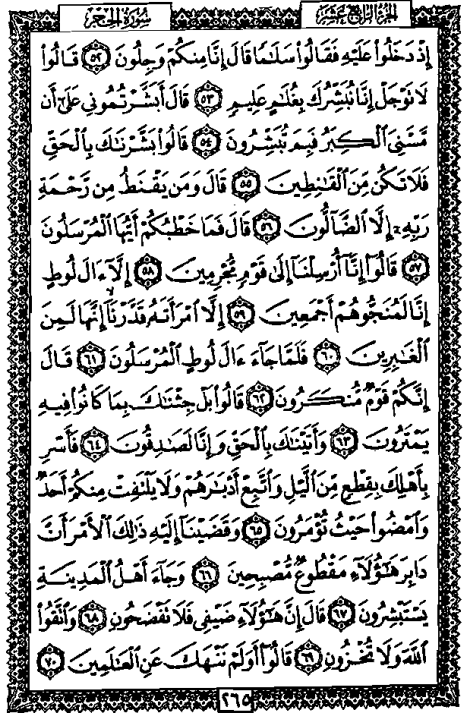 سُورَةُ الحِجْرِ الجُزْءُ الرَّابِعَ عَشَرَ
إِذْ دَخَلُوا۟ عَلَيْهِ فَقَالُوا۟ سَلَـٰمًا قَالَ إِنَّا مِنكُمْ وَجِلُونَ ٥٢ قَالُوا۟
لَا تَوْجَلْ إِنَّا نُبَشِّرُكَ بِغُلَـٰمٍ عَلِيمٍ ٥٣ قَالَ أَبَشَّرْتُمُونِى عَلَىٰٓ أَن
مَّسَّنِىَ ٱلْكِبَرُ فَبِمَ تُبَشِّرُونَ ٥٤ قَالُوا۟ بَشَّرْنَـٰكَ بِٱلْحَقِّ
فَلَا تَكُن مِّنَ ٱلْقَـٰنِطِينَ ٥٥ قَالَ وَمَن يَقْنَطُ مِن رَّحْمَةِ
رَبِّهِۦٓ إِلَّا ٱلضَّآلُّونَ ٥٦ قَالَ فَمَا خَطْبُكُمْ أَيُّهَا ٱلْمُرْسَلُونَ
٥٧ قَالُوٓا۟ إِنَّآ أُرْسِلْنَآ إِلَىٰ قَوْمٍ مُّجْرِمِينَ ٥٨ إِلَّآ ءَالَ لُوطٍ
إِنَّا لَمُنَجُّوهُمْ أَجْمَعِينَ ٥٩ إِلَّا ٱمْرَأَتَهُۥ قَدَّرْنَآ إِنَّهَا لَمِنَ
ٱلْغَـٰبِرِينَ ٦٠ فَلَمَّا جَآءَ ءَالَ لُوطٍ ٱلْمُرْسَلُونَ ٦١ قَالَ
إِنَّكُمْ قَوْمٌ مُّنكَرُونَ ٦٢ قَالُوا۟ بَلْ جِئْنَـٰكَ بِمَا كَانُوا۟ فِيهِ
يَمْتَرُونَ ٦٣ وَأَتَيْنَـٰكَ بِٱلْحَقِّ وَإِنَّا لَصَـٰدِقُونَ ٦٤ فَأَسْرِ
بِأَهْلِكَ بِقِطْعٍ مِّنَ ٱلَّيْلِ وَٱتَّبِعْ أَدْبَـٰرَهُمْ وَلَا يَلْتَفِتْ مِنكُمْ أَحَدٌ
وَٱمْضُوا۟ حَيْثُ تُؤْمَرُونَ ٦٥ وَقَضَيْنَآ إِلَيْهِ ذَٰلِكَ ٱلْأَمْرَ أَنَّ
دَابِرَ هَـٰٓؤُلَآءِ مَقْطُوعٌ مُّصْبِحِينَ ٦٦ وَجَآءَ أَهْلُ ٱلْمَدِينَةِ
يَسْتَبْشِرُونَ ٦٧ قَالَ إِنَّ هَـٰٓؤُلَآءِ ضَيْفِى فَلَا تَفْضَحُونِ ٦٨ وَٱتَّقُوا۟
ٱللَّهَ وَلَا تُخْزُونِ ٦٩ قَالُوٓا۟ أَوَلَمْ نَنْهَكَ عَنِ ٱلْعَـٰلَمِينَ ٧٠
٢٦٥